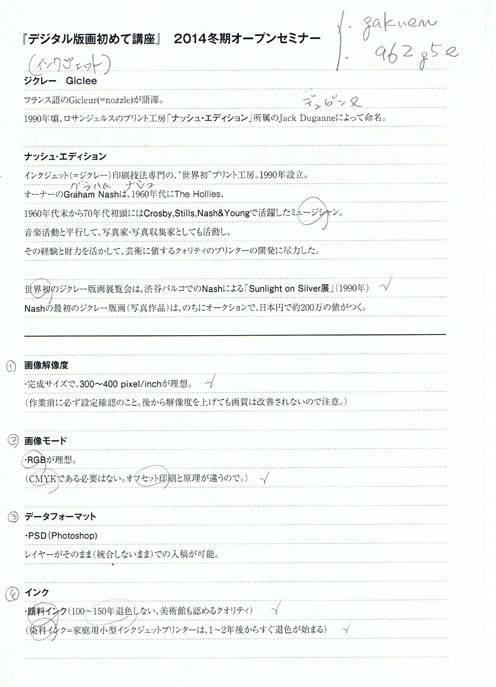 『デジタル版画初めて講座』 2014冬期オープンセミナー
gakuen
a62g5e
(インクジェット)
ジクレー Giclee
フランス語のGicleur(=nozzle)が語源。
1990年頃、ロサンジェルスのプリント工房「ナッシュ・エディション」所属のJack Duganneによって命名。
ナッシュ・エディション
インクジェット(=ジクレー)印刷技法専門の、"世界初"プリント工房。1990年設立。
グラハム ナッシュ
オーナーのGraham Nashは、1960年代にThe Hollies、
1960年代末から70年代初頭にはCrosby,Stills,Nash&Youngで活躍したミュージシャン。
音楽活動と平行して、写真家・写真収集家としても活動し、
その経験と財力を活かして、芸術に値するクォリティのプリンターの開発に尽力した。
世界初のジクレー版画展覧会は、渋谷パルコでのNashによる「Sunlight on Silver展」(1990年)
Nashの最初のジクレー版画(写真作品)は、のちにオークションで、日本円で約200万の値がつく。
① 画像解像度
・完成サイズで、300~400 pixel/inchが理想。
(作業前に必ず設定確認のこと。後から解像度を上げても画質は改善されないので注意。)
② 画像モード
・RGBが理想。
(CMYKである必要はない。オフセット印刷と原理が違うので。)
③ データフォーマット
・PSD(Photoshop)
レイヤーがそのまま(統合しないまま)での入稿が可能。
④ インク
・顔料インク(100~150年退色しない、美術館も認めるクオリティ)
(染料インク=家庭用小型インクジェットプリンターは、1~2年後からすぐ退色が始まる)